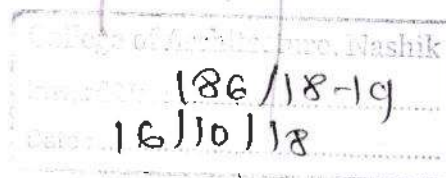 College of Architecture, Nashik
186/18-19
Date: 16/10/18